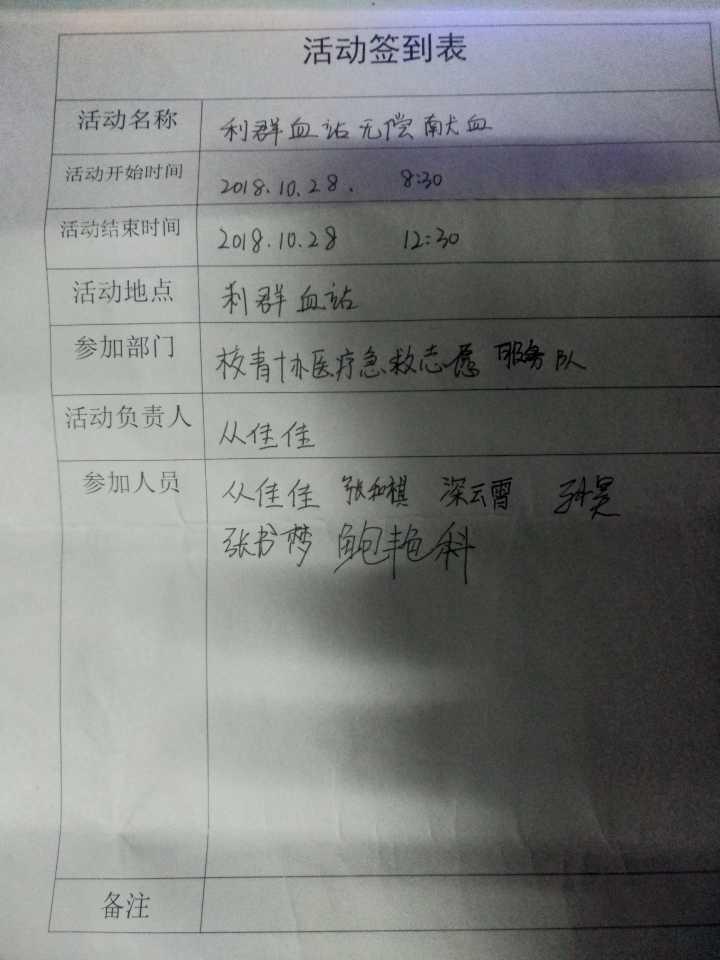 活动签到表
活动名称 利群血站无偿献血
活动开始时间 2018.10.28. 8:30
活动结束时间 2018.10.28 12:30
活动地点 利群血站
参加部门 校青协医疗急救志愿服务队
活动负责人 从佳佳
参加人员 从佳佳 张和祺 深云霄 孙昊
张书梦 鲍艳科
备注